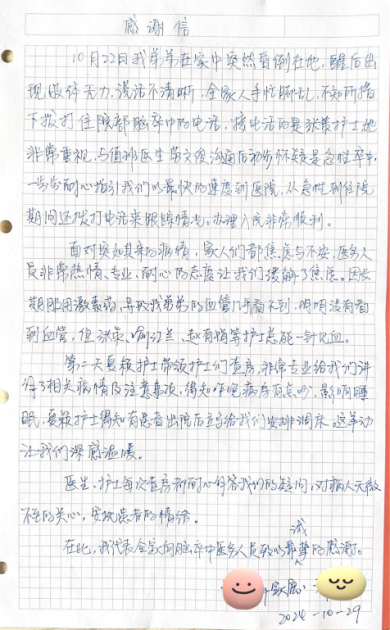 感谢信
10月22日我弟弟在家中突然昏倒在地，醒后出
现肢体无力，说话不清晰，全家人手忙脚乱，不知所措
下拨打住院部脑卒中的电话，接电话的是张黎护士她
非常重视，与值班医生黄文俊沟通后初步怀疑是急性卒中，
一步步耐心指引我们以最快的速度到医院，从急性到住院
期间还拨打电话来跟踪情况，办理入院非常顺利。
面对突如其来的病情，家人们都焦虑与不安，医务人
员非常热情、专业、耐心的态度让我们缓解了焦虑。因长
期服用激素药，导致我弟弟的血管几乎看不到，明明没有看
到血管，但张黎、赵有娟等护士总能一针见血。
第二天夏毅护士带领护士们查房，非常专业给我们讲
了相关病情及注意事项，得知咱吧病房有点吵，影响睡
眠，夏毅护士得知有患者出院后立马给我们安排调床。这举动
让我们深感温暖。
医生、护士每次查房都耐心解答我们的疑问，对病人无微
不至的关心，安抚患者的情绪。
诚
在此，我代表全家向脑卒中医务人员致以最挚的感谢。
家属：
2024-10-29